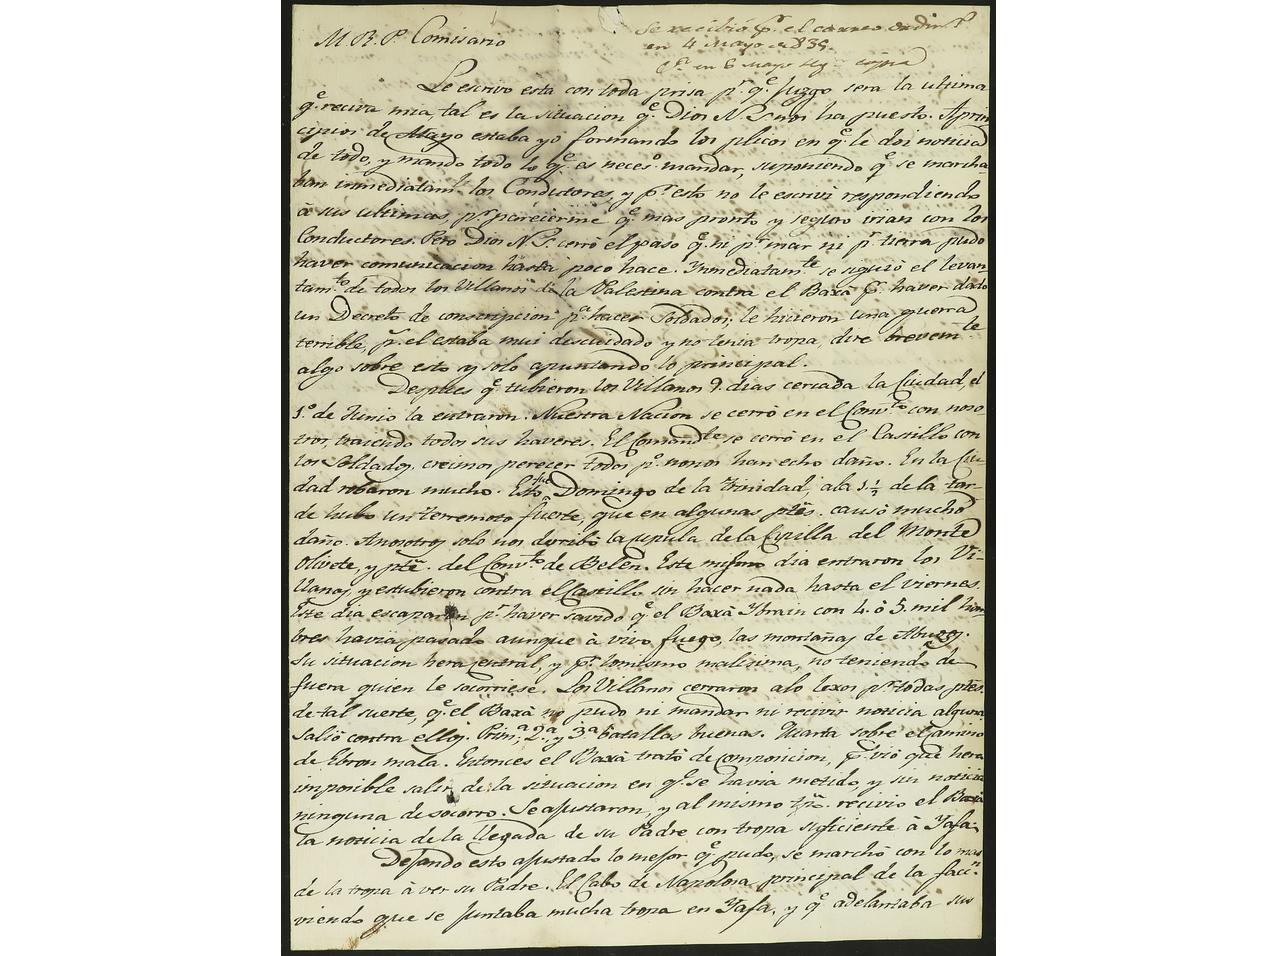 Se recibió pr. el correo ordinro
M. R. P. Comisario
en 4 Mayo de 835.
en 6 Mayo copia
Le escrivo esta con toda prisa pr. qe. juzgo sera la ultima
qe. reciva mia, tal es la situacion qe. Dios N. Sr. nos ha puesto. A prin-
cipios de Mayo estaba yo formando los plicos en qe. le doi noticia
de todo, y mando todo lo qe. es neceso. mandar, suponiendo qe. se marcha-
ban inmediatamte. los Conductores, y pr. esto no le escrivi respondiendo
à sus ultimas, pr. parecerme qe. mas pronto y seguro irian con los
Conductores. Pero Dios N. Sr. cerrò el paso qe. ni pr. mar ni pr. tierra pudo
haver comunicacion hasta poco hace. Inmediatamte. se siguió el levan-
tamto. de todos los Villanos de la Palestina contra el Baxà pr. haver dado
un Decreto de conscripcion pa. hacer Soldados; le hicieron una guerra
terrible, pr. el estaba mui descuidado y no tenia tropa, dire brevemte.
algo sobre esto y solo apuntando lo principal.
Despues qe. tubieron los Villanos 9. dias cercada la Ciudad, el
1.º de Junio la entraron. Nuestra Nacion se cerrò en el Convto. con noso-
tros, trayendo todos sus haveres. El Comandte. se cerrò en el Castillo con
los Soldados, creimos perecer todos pº. no nos han echo daño. En la Ciu-
dad robaron mucho. Esto fue Domingo de la Trinidad, a la 1½ de la tar-
de hubo un terremoto fuerte, que en algunas ptes. causò mucho
daño. A nosotros solo nos derribò la cupula de la Capilla del Monte
Olivete, y pte. del Convto. de Belen. Este mismo dia entraron los Vi-
llanos, y estubieron contra el Castillo sin hacer nada hasta el viernes.
Este dia escaparon pr. haver savido qe. el Baxà Ybrain con 4. ò 5. mil hom-
bres havia pasado aunque à vivo fuego, las montañas de Abugos.
Su situacion hera central, y pr. lo mismo malisima, no teniendo de
fuera quien le socorriese. Los Villanos cerraron a lo lexos pr. todas ptes.
de tal suerte, qe. el Baxà no pudo ni mandar ni recivir noticia alguna
Saliò contra ellos. Prima. 2.a y 3.a batallas buenas. Quarta sobre el Camino
de Ebron mala. Entonces el Baxà tratò de composicion, pr. viò que hera
imposible salir de la situacion en qe. se havia metido, y sin noticia
ninguna de socorro. Se ajustaron, y al mismo tpo. recivio el Baxà
la noticia de la llegada de su Padre con tropa suficiente à Yafa.
Dejando esto ajustado lo mejor qe. pudo, se marchò con lo mas
de la tropa à ver su Padre. El Cabo de Napolosa principal de la facn.
viendo que se juntaba mucha tropa en Yafa, y qe. adelantaba sus